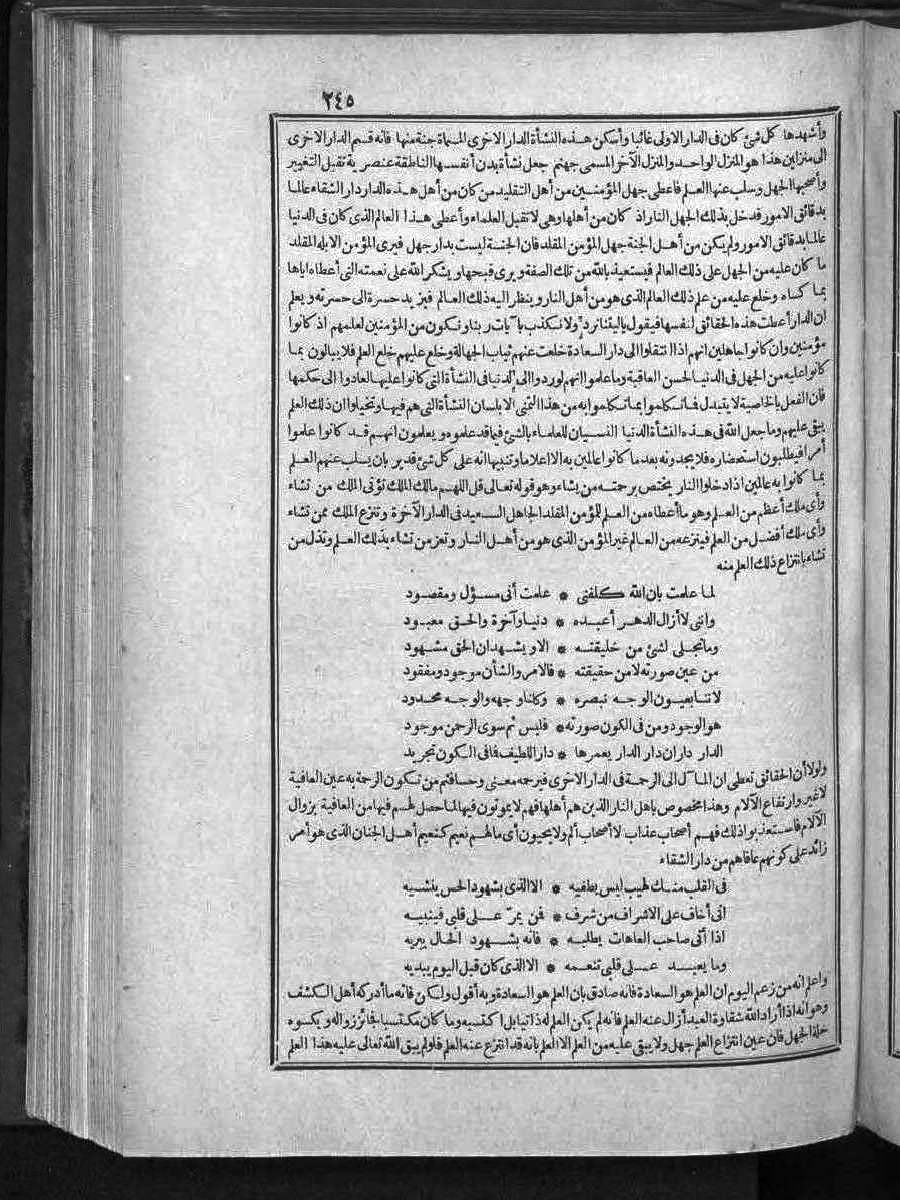 ٢٤٥
وأشهدها كل شئ كان فى الدار الاولى غائبا وأسكن هذه النشأة الدار الاخرى المسماة جنة منها فانه قسم الدار الاخرى
الى منزلين هذا هو المنزل الواحد والمنزل الآخر المسمى جهنم جعل نشأة بدن أنفسها الناطقة عنصرية تقبل التغيير
وأصحبها الجهل وسلب عنها العلم فاعطى جهل المؤمنين من أهل التقليد من كان من أهل هذه الدار دار الشقاء عالما
بدقائق الامور فدخل بذلك الجهل النار اذ كان من أهلها وهى لا تقبل العلماء وأعطى هذا العالم الذى كان فى الدنيا
عالما بدقائق الامور ولم يكن من أهل الجنة جهل المؤمن المقلد فان الجنة ليست بدار جهل فيرى المؤمن الابله المقلد
ما كان عليه من الجهل على ذلك العالم فيستعيذ بالله من تلك الصفة ويرى قبحها ويشكر الله على نعمته التى أعطاه اياها
بما كساه وخلع عليه من علم ذلك العالم الذى هو من أهل النار وينظر اليه ذلك العالم فيزيد حسرة الى حسرته ويعلم
ان الدار أعطت هذه الحقائق لنفسها فيقول ياليتنا نرد ولا نكذب بآيات ربنا ونكون من المؤمنين لعلمهم اذ كانوا
مؤمنين وان كانوا جاهلين انهم اذا انتقلوا الى دار السعادة خلعت عنهم ثياب الجهالة وخلع عليهم خلع العلم فلا يبالون بما
كانوا عليه من الجهل فى الدنيا لحسن العاقبة وما علموا انهم لو ردوا الى الدنيا فى النشأة التى كانوا عليها لعادوا الى حكمها
فان الفعل بالخاصية لا يتبدل فما تكلموا بما تكلموا به من هذا التمنى الا بلسان النشأة التى هم فيها وتخيلوا ان ذلك العلم
يبقى عليهم وما جعل الله فى هذه النشأة الدنيا النسيان للعلماء بالشئ فيما قد علموه ويعلمون انهم قد كانوا علموا
أمرا فيطلبون استحضاره فلا يجدونه بعد ما كانوا عالمين به الا اعلاما وتنبيها انه على كل شئ قدير بان يسلب عنهم العلم
بما كانوا به عالمين اذا دخلوا النار يختص برحمته من يشاء وهو قوله تعالى قل اللهم مالك الملك تؤتى الملك من تشاء
وأى ملك أعظم من العلم وهو ما أعطاه من العلم للمؤمن المقلد الجاهل السعيد فى الدار الآخرة وتنزع الملك ممن تشاء
وأى ملك أفضل من العلم فينزعه من العالم غير المؤمن الذى هو من أهل النار وتعز من تشاء بذلك العلم وتذل من
تشاء بانتزاع ذلك العلم منه
لما علمت بان الله كلفنى * علمت أنى مسؤل ومقصود
واننى لا أزال الدهر أعبده * دنيا وآخرة والحق معبود
وما تجلى لشئ من خليقته * الا ويشهد ان الحق مشهود
من عين صورته لا من حقيقته * فالامر والشأن موجود ومفقود
لانا بعيون الوجه نبصره * وكلنا وجهه والوجه محدود
هو الوجود ومن فى الكون صورته * فليس ثم سوى الرحمن موجود
الدار داران دار الدار يعمرها * دار اللطيف فما فى الكون تجريد
ولولا أن الحقائق تعطى ان المآل الى الرحمة فى الدار الاخرى فيرحمه معنى وحسا فثم من تكون الرحمة به عين العافية
لا غير وارتفاع الآلام وهذا مخصوص باهل النار الذين هم أهلها فهم لا يموتون فيها لما حصل لهم فيها من العافية بزوال
الآلام فاستعذبوا ذلك فهم أصحاب عذاب لا أصحاب ألم ولا يحيون أى ما لهم نعيم كنعيم أهل الجنان الذى هو أمر
زائد على كونهم عافاهم من دار الشقاء
فى القلب منك لهيب ليس يطفيه * الا الذى بشهود الحس ينشيه
انى أخاف على الاشراف من شرف * فمن يمر على قلبى فينبيه
اذا أتى صاحب العاهات يطلبه * فانه بشهود الحال يبريه
وما يعيد على قلبى تنعمه * الا الذى كان قبل اليوم يبديه
واعلم انه من زعم اليوم ان العلم هو السعادة فانه صادق بان العلم هو السعادة وبه أقول ولكن فاته ما أدركه أهل الكشف
وهو انه اذا أراد الله شقاوة العبد أزال عنه العلم فانه لم يكن العلم له ذاتيا بل اكتسبه وما كان مكتسبا فجائز زواله ويكسوه
حلة الجهل فان عين انتزاع العلم جهل ولا يبقى عليه من العلم الا العلم بانه قد انتزع عنه العلم فلو لم يبق الله تعالى عليه هذا العلم